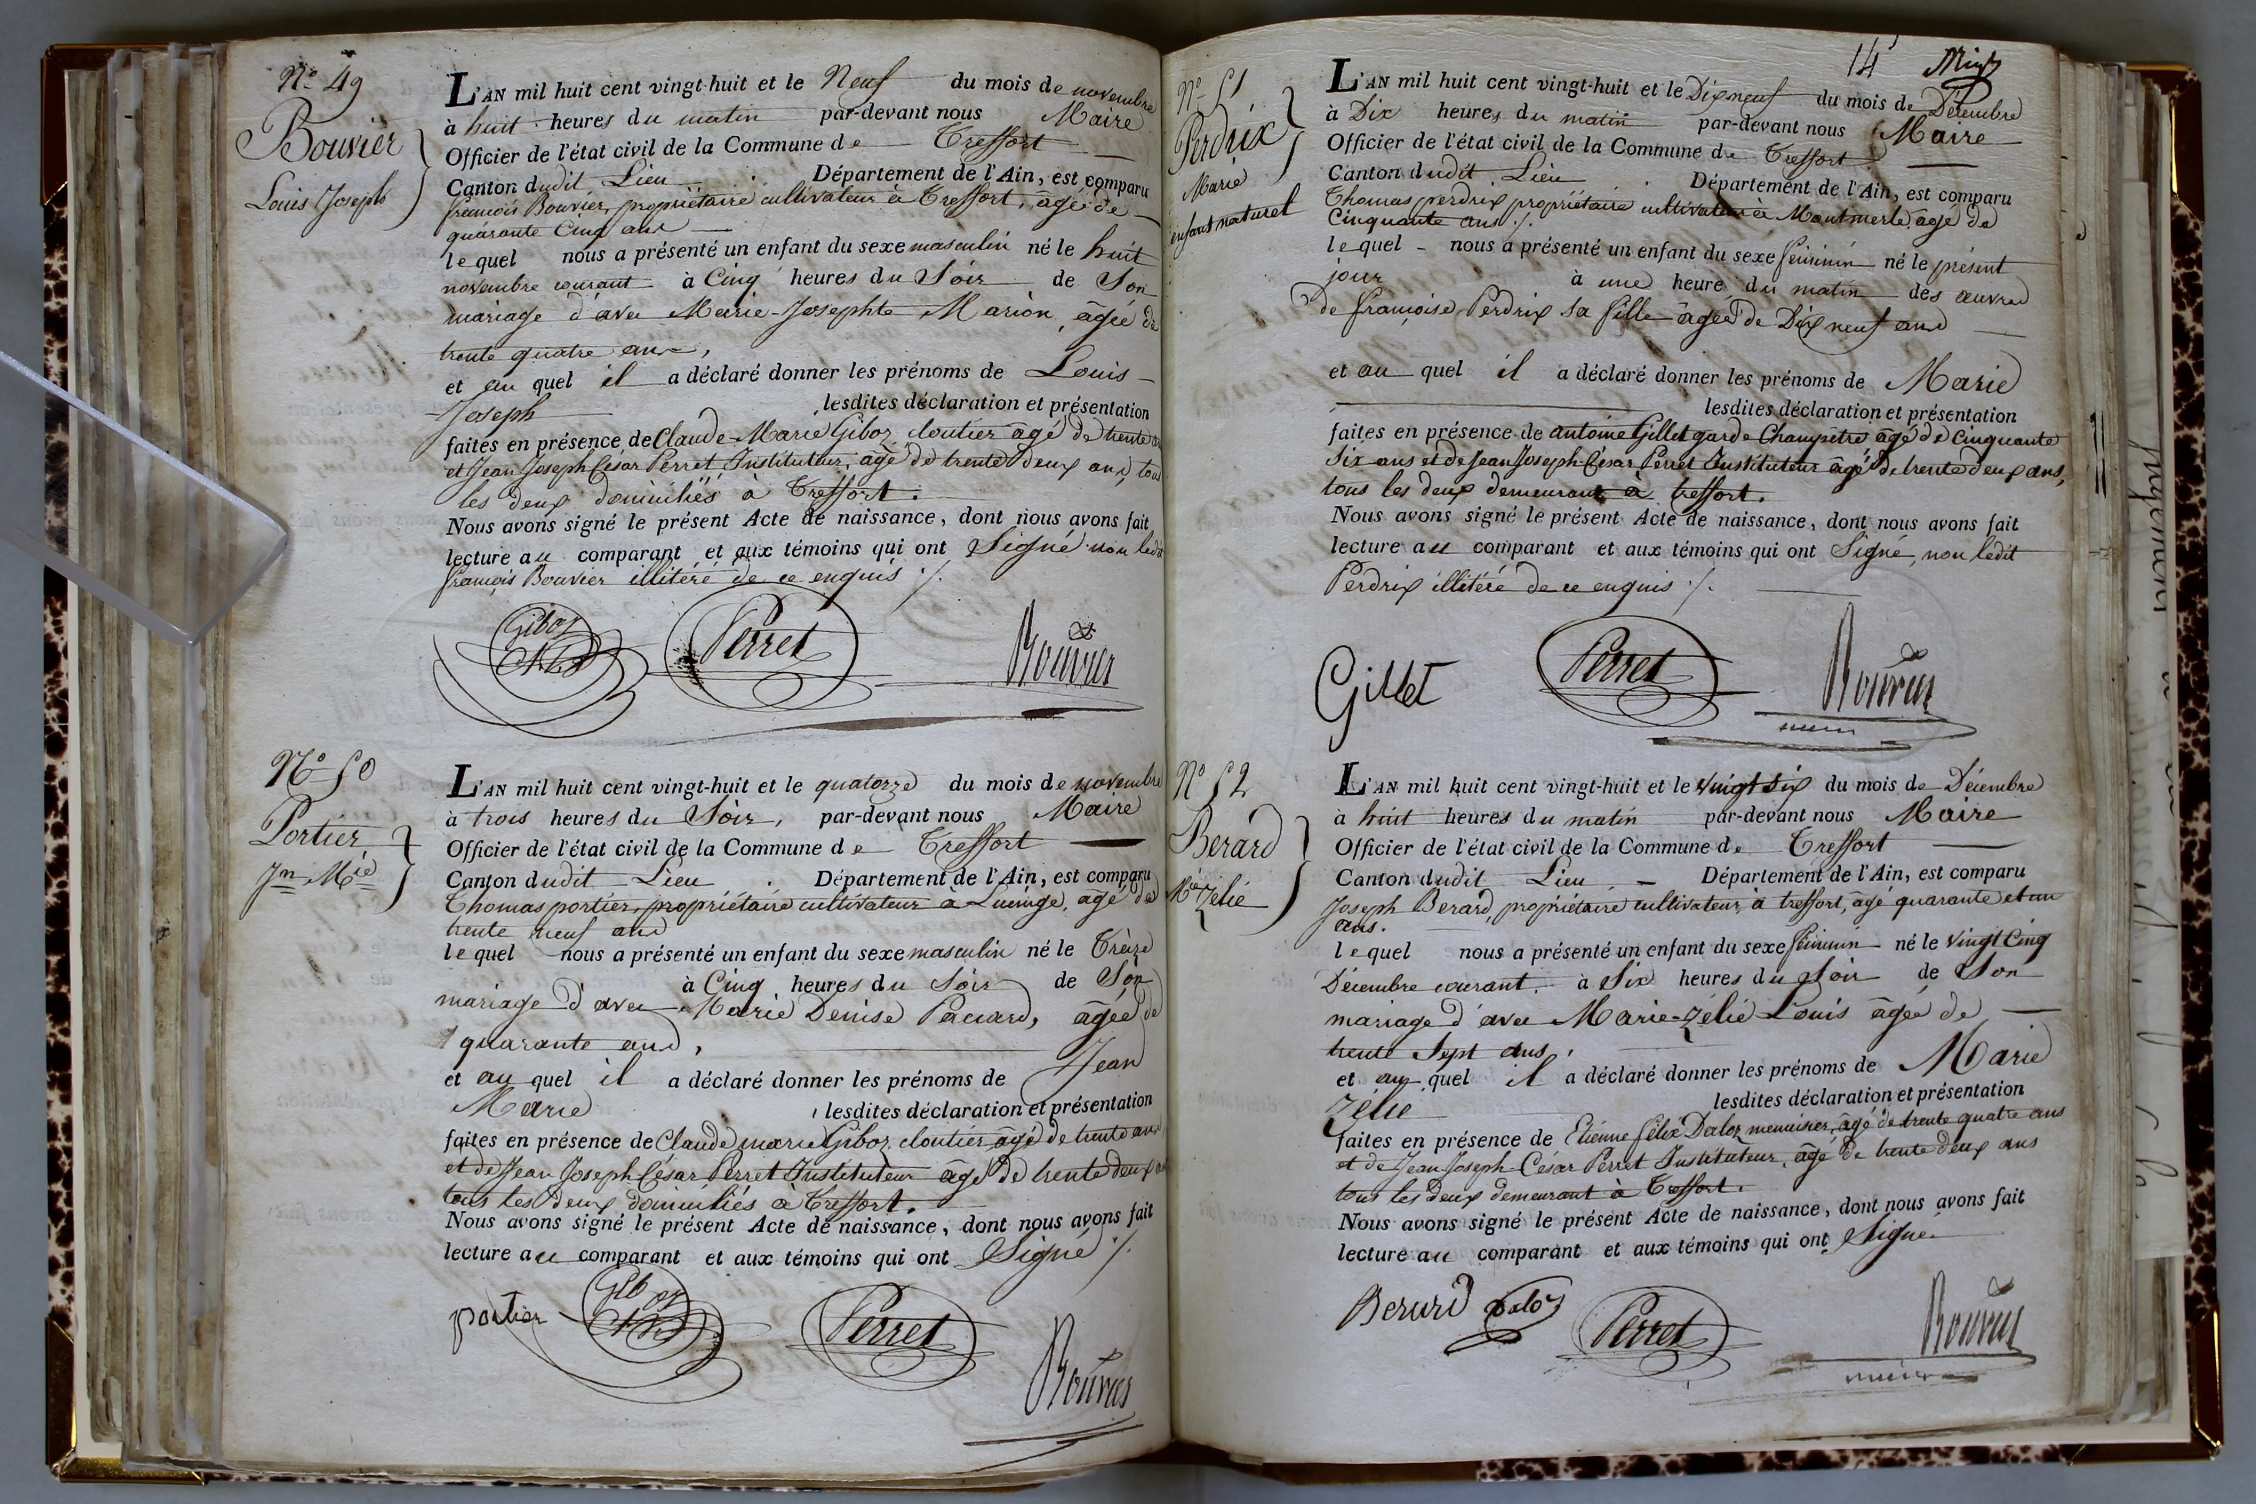 Nº 49
Bouvier
Louis Joseph
L'AN mil huit cent vingt-huit et le Neuf du mois de novembre
à huit heures du matin par-devant nous Maire
Officier de l'état civil de la Commune de Treffort
Canton dudit Lieu Département de l'Ain, est comparu
françois Bouvier, propriétaire cultivateur à Treffort, âgé de
quarante cinq ans
lequel nous a présenté un enfant du sexe masculin né le huit
novembre courant à Cinq heures du Soir de Son
mariage d'avec Marie-Josephte Marion, âgée de
trente quatre ans,
et au quel il a déclaré donner les prénoms de Louis-
Joseph lesdites déclaration et présentation
faites en présence de Claude-Marie Giboz cloutier âgé de trente
et Jean Joseph César Perret Instituteur, âgé de trente deux ans, tous
les deux domiciliés à Treffort.
Nous avons signé le présent Acte de naissance, dont nous avons fait
lecture au comparant et aux témoins qui ont Signé non ledit
françois Bouvier illitéré de ce enquis ./.
Giboz
Perret
Bouvier
Nº 50
Portier
Jn Mie
L'AN mil huit cent vingt-huit et le quatorze du mois de novembre
à trois heures du Soir, par-devant nous Maire
Officier de l'état civil de la Commune de Treffort
Canton dudit Lieu Département de l'Ain, est comparu
Thomas portier, propriétaire cultivateur à Lucinge, âgé de
trente neuf ans
lequel nous a présenté un enfant du sexe masculin né le Treize
à Cinq heures du Soir de Son
mariage d'avec Marie Denise Pacard, âgée de
quarante ans,
et au quel il a déclaré donner les prénoms de Jean
Marie lesdites déclaration et présentation
faites en présence de Claude marie Giboz cloutier âgé de trente ans
et de Jean Joseph César Perret Instituteur âgé de trente deux
tous les deux domiciliés à Treffort.
Nous avons signé le présent Acte de naissance, dont nous avons fait
lecture au comparant et aux témoins qui ont Signé ./.
portier
Giboz
Perret
Bouvier
14
Nº 51
Perdrix
Marie
enfant naturel
L'AN mil huit cent vingt-huit et le Dix neuf du mois de Décembre
à Dix heures du matin par-devant nous Maire
Officier de l'état civil de la Commune de Treffort
Canton dudit Lieu Département de l'Ain, est comparu
Thomas perdrix propriétaire cultivateur à Montmerle âgé de
Cinquante ans ./.
lequel nous a présenté un enfant du sexe féminin né le présent
jour à une heure du matin des œuvres
de françoise Perdrix sa fille âgée de Dix neuf ans
et au quel il a déclaré donner les prénoms de Marie
lesdites déclaration et présentation
faites en présence de antoine Gillet garde Champêtre âgé de cinquante
Six ans et de Jean Joseph César Perret Instituteur âgé de trente deux ans,
tous les deux demeurant à treffort.
Nous avons signé le présent Acte de naissance, dont nous avons fait
lecture au comparant et aux témoins qui ont Signé, non ledit
Perdrix illitéré de ce enquis ./.
Gillet
Perret
Bouvier
Nº 52
Berard
Mie Zélie
L'AN mil huit cent vingt-huit et le vingt six du mois de Décembre
à huit heures du matin par-devant nous Maire
Officier de l'état civil de la Commune de Treffort
Canton dudit Lieu Département de l'Ain, est comparu
Joseph Berard, propriétaire cultivateur à treffort, âgé quarante et un
ans.
lequel nous a présenté un enfant du sexe féminin né le vingt Cinq
Décembre courant à Six heures du Soir de Son
mariage d'avec Marie-Zélie Louis âgée de
trente Sept ans,
et au quel il a déclaré donner les prénoms de Marie
Zélie lesdites déclaration et présentation
faites en présence de Etienne félix Daloz menuisier, âgé de trente quatre ans
et de Jean Joseph César Perret Instituteur, âgé de trente deux ans
tous les deux demeurant à Treffort.
Nous avons signé le présent Acte de naissance, dont nous avons fait
lecture au comparant et aux témoins qui ont Signé.
Berard
Daloz
Perret
Bouvier